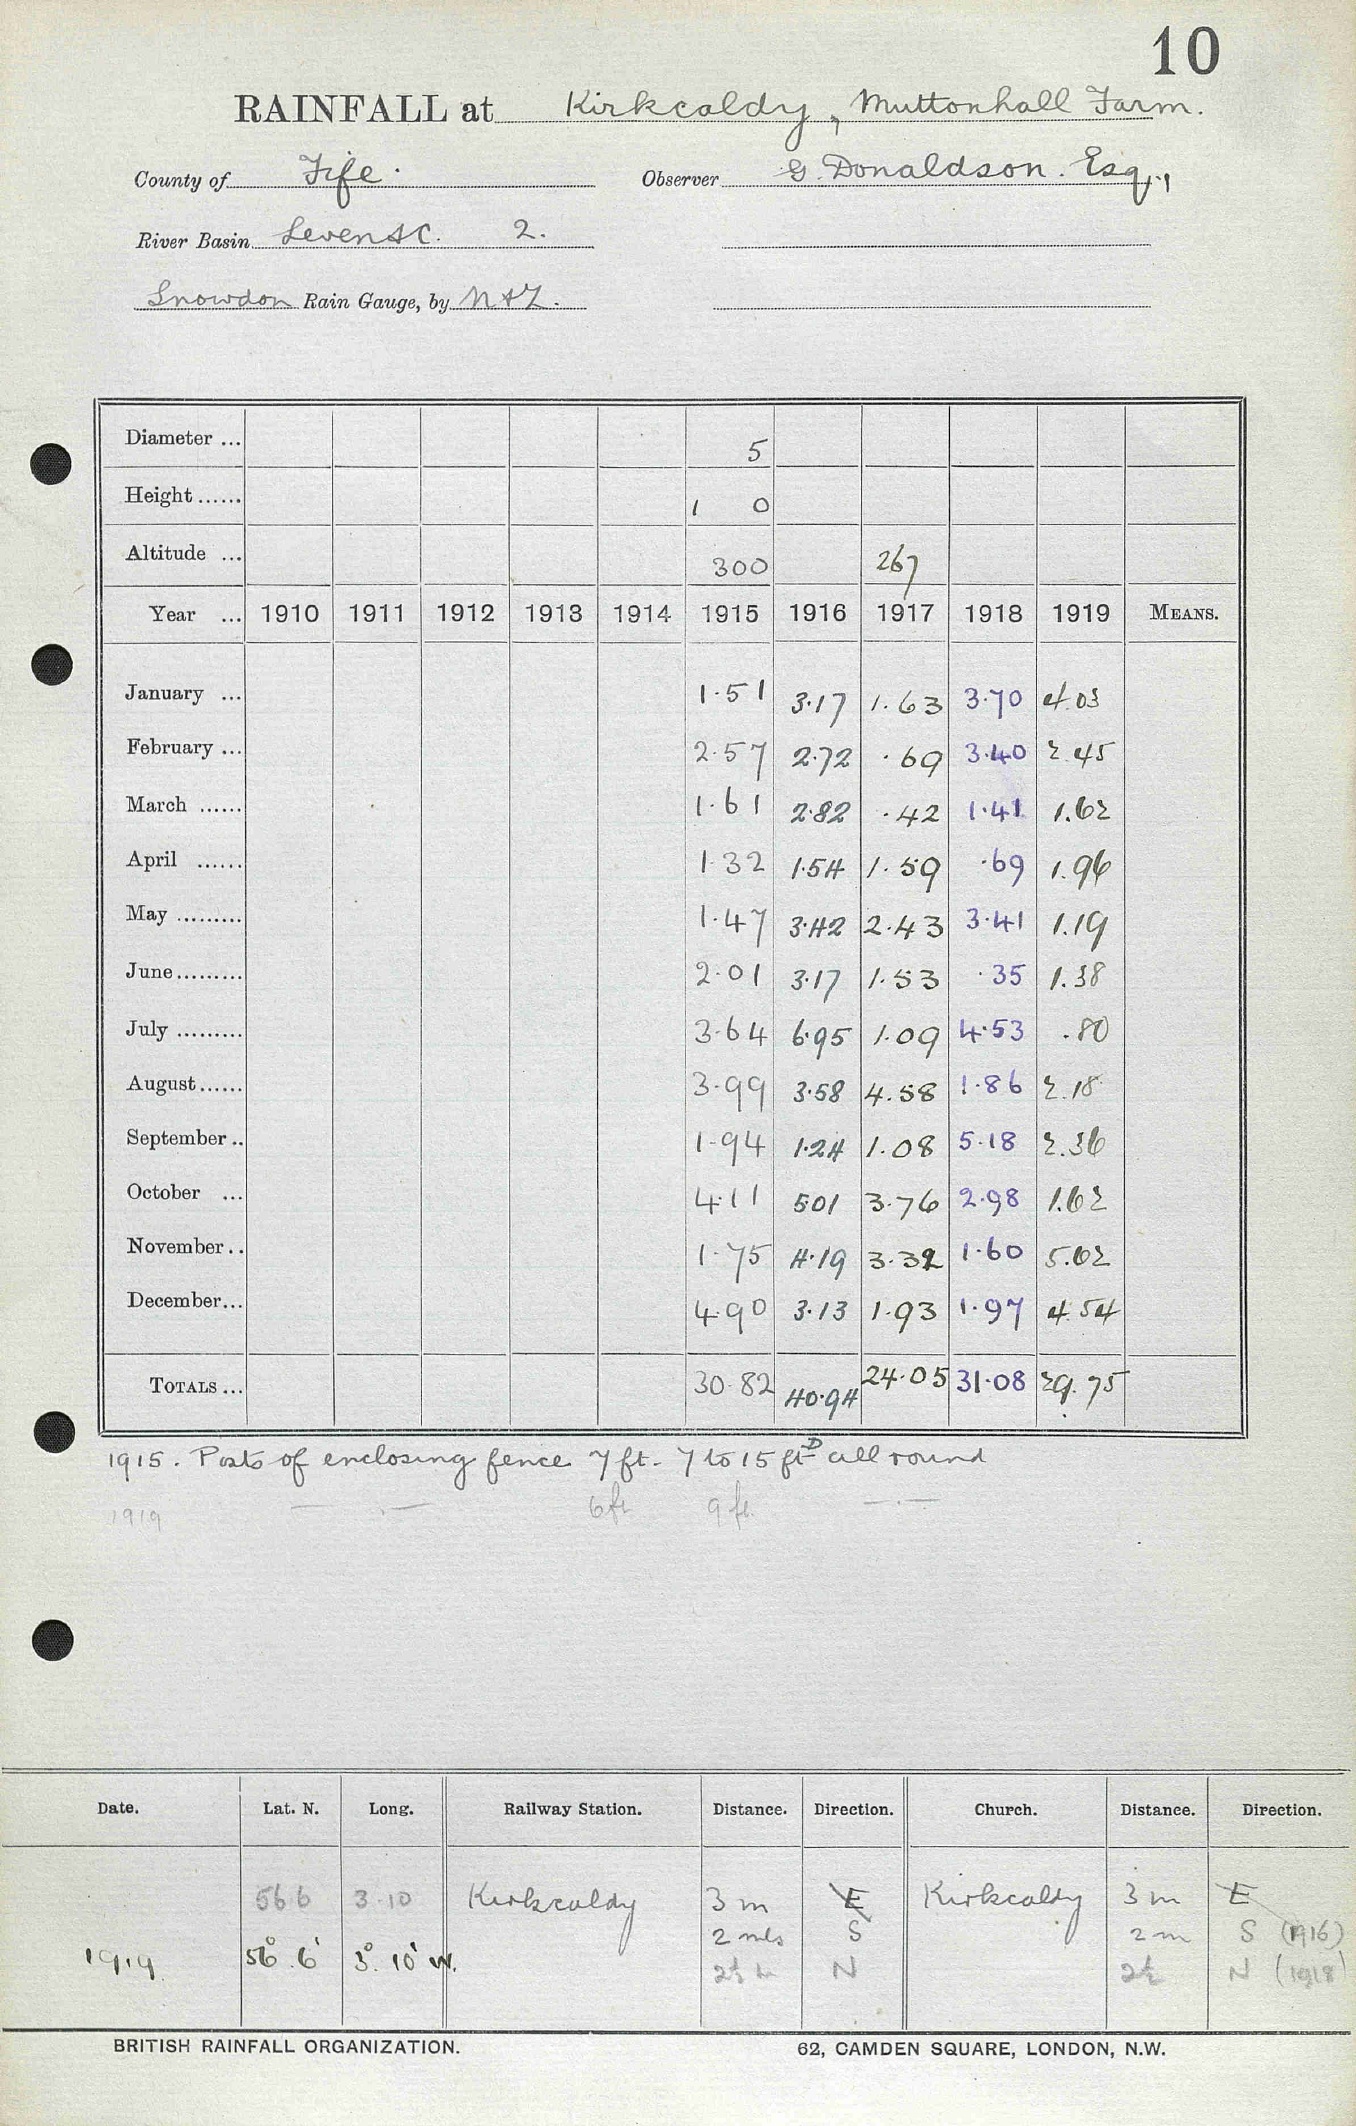 10
RAINFALL at Kirkcaldy, Muttonhall Farm.
County of Fife. Observer G. Donaldson. Esq.,
River Basin Leven &c. 2.
Snowdon Rain Gauge, by N & Z.
Diameter ... 5
Height ...... 1 0
Altitude ... 300 267
Year ... 1910 1911 1912 1913 1914 1915 1916 1917 1918 1919 MEANS.
January ... 1.51 3.17 1.63 3.70 4.03
February ... 2.57 2.72 .69 3.40 2.45
March ...... 1.61 2.82 .42 1.41 1.62
April ...... 1.32 1.54 1.59 .69 1.96
May ......... 1.47 3.42 2.43 3.41 1.19
June ......... 2.01 3.17 1.53 .35 1.38
July ......... 3.64 6.95 1.09 4.53 .80
August ...... 3.99 3.58 4.58 1.86 2.18
September .. 1.94 1.24 1.08 5.18 2.36
October ... 4.11 501 3.76 2.98 1.62
November .. 1.75 4.19 3.32 1.60 5.62
December ... 4.90 3.13 1.93 1.97 4.54
TOTALS ... 30.82 40.94 24.05 31.08 29.75
1915. Posts of enclosing fence 7 ft. 7 to 15 ft D all round
1919 — . — 6 ft 9 ft. — . —
Date. Lat. N. Long. Railway Station. Distance. Direction. Church. Distance. Direction.
56 6 3.10 Kirkcaldy 3 m E Kirkcaldy 3 m E
2 mls S 2 m S (1916)
1919. 56° 6' 3° 10' W. 2½ m N 2½ N (1918)
BRITISH RAINFALL ORGANIZATION. 62, CAMDEN SQUARE, LONDON, N.W.